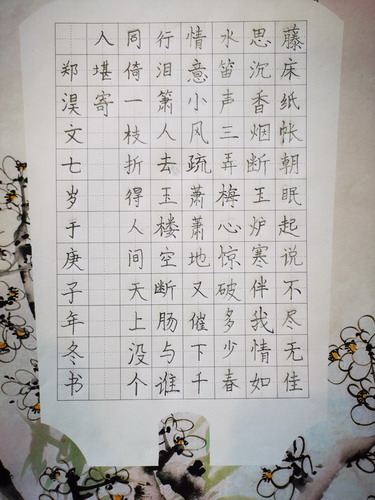 藤床纸帐朝眠起说不尽无佳
思沉香烟断玉炉寒伴我情如
水笛声三弄梅心惊破多少春
情意小风疏萧萧地又催下千
行泪箫人去玉楼空断肠与谁
同倚一枝折得人间天上没个
人堪寄
郑淏文七岁于庚子年冬书